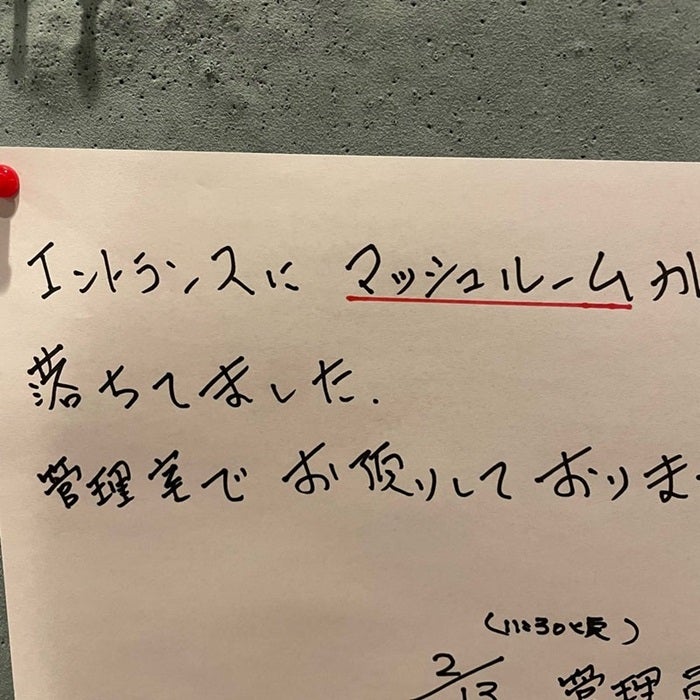 エントランスに マッシュルーム が
落ちてました.
管理室で お預りして おりま
(11:30頃)
2/13 管理